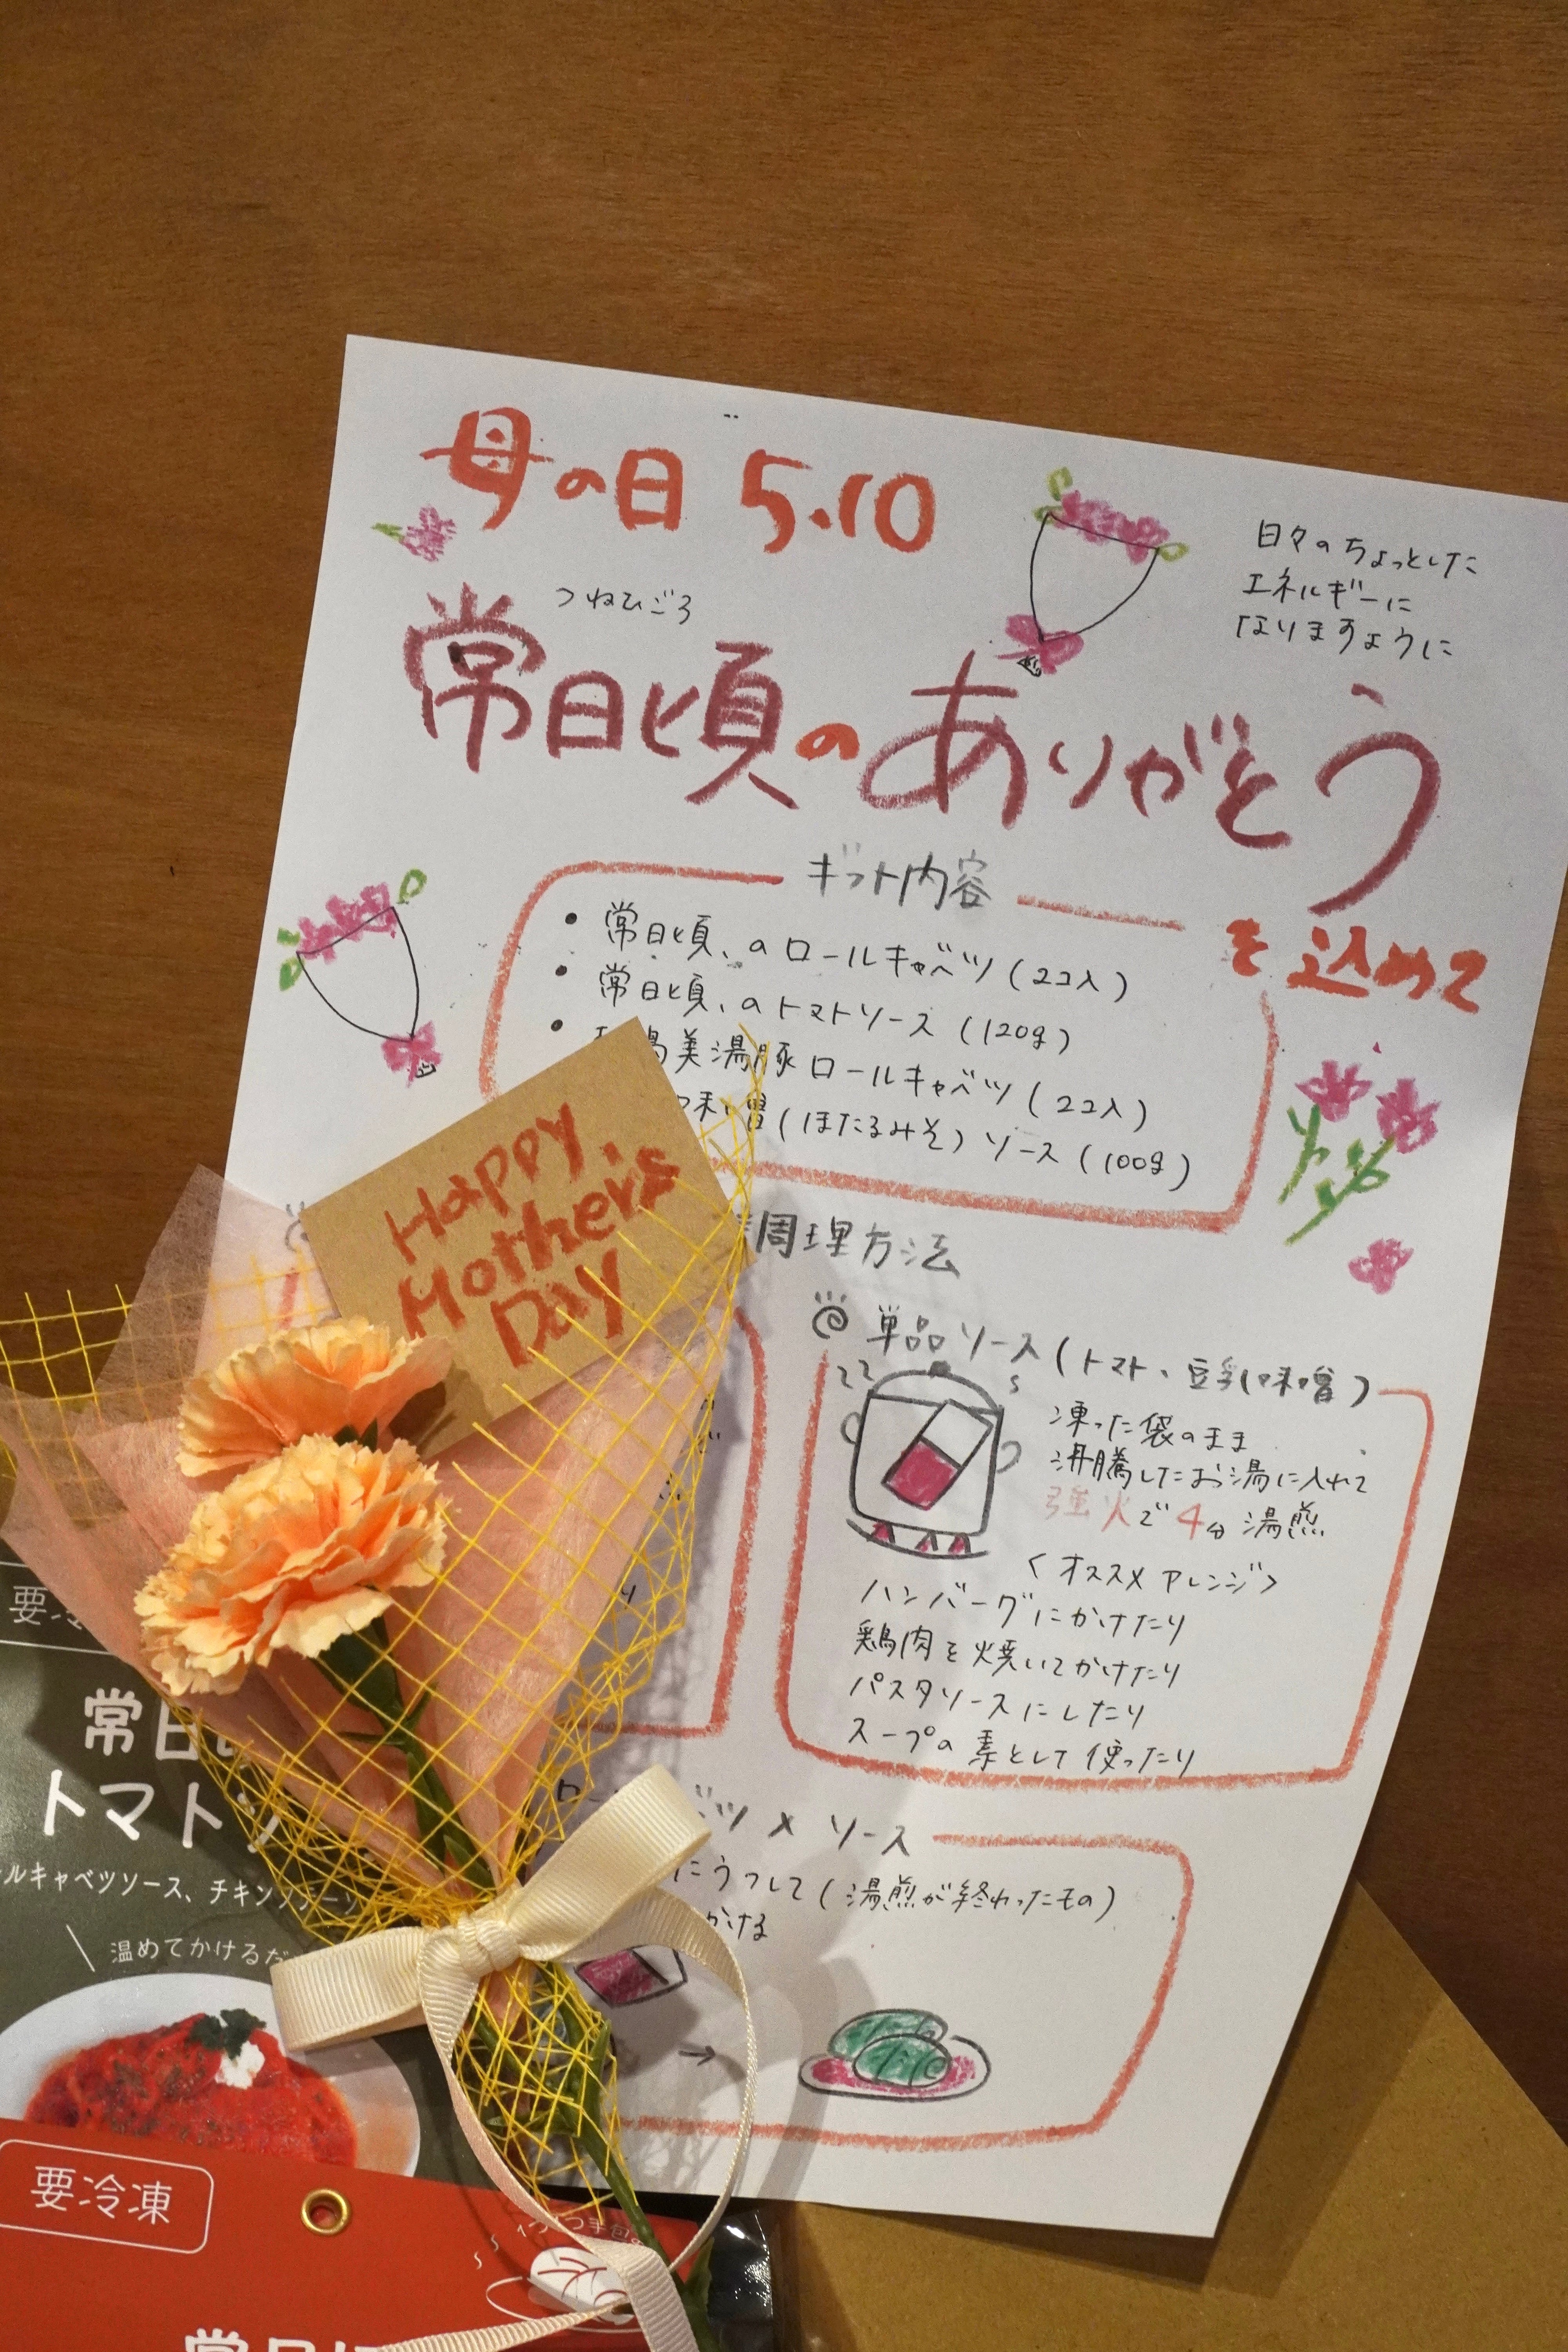 母の日 5.10
日々のちょっとした
エネルギーに
なりますように
つねひごろ
常日頃のありがとう
を込めて
ギフト内容
・常日頃、のロールキャベツ(2コ入)
・常日頃、のトマトソース(120g)
美湯豚ロールキャベツ(2コ入)
(ほたるみそ)ソース(100g)
Happy
Mother's
Day
調理方法
単品ソース(トマト、豆乳味噌)
凍った袋のまま
沸騰したお湯に入れて
強火で4分湯煎
<オススメアレンジ>
ハンバーグにかけたり
鶏肉を焼いてかけたり
パスタソースにしたり
スープの素として使ったり
ツ×ソース
にうつして(湯煎が終わったもの)
かける
常日
トマト
ルキャベツソース、チキン
温めてかけるだ
要冷凍
1つ1つ手包
常日